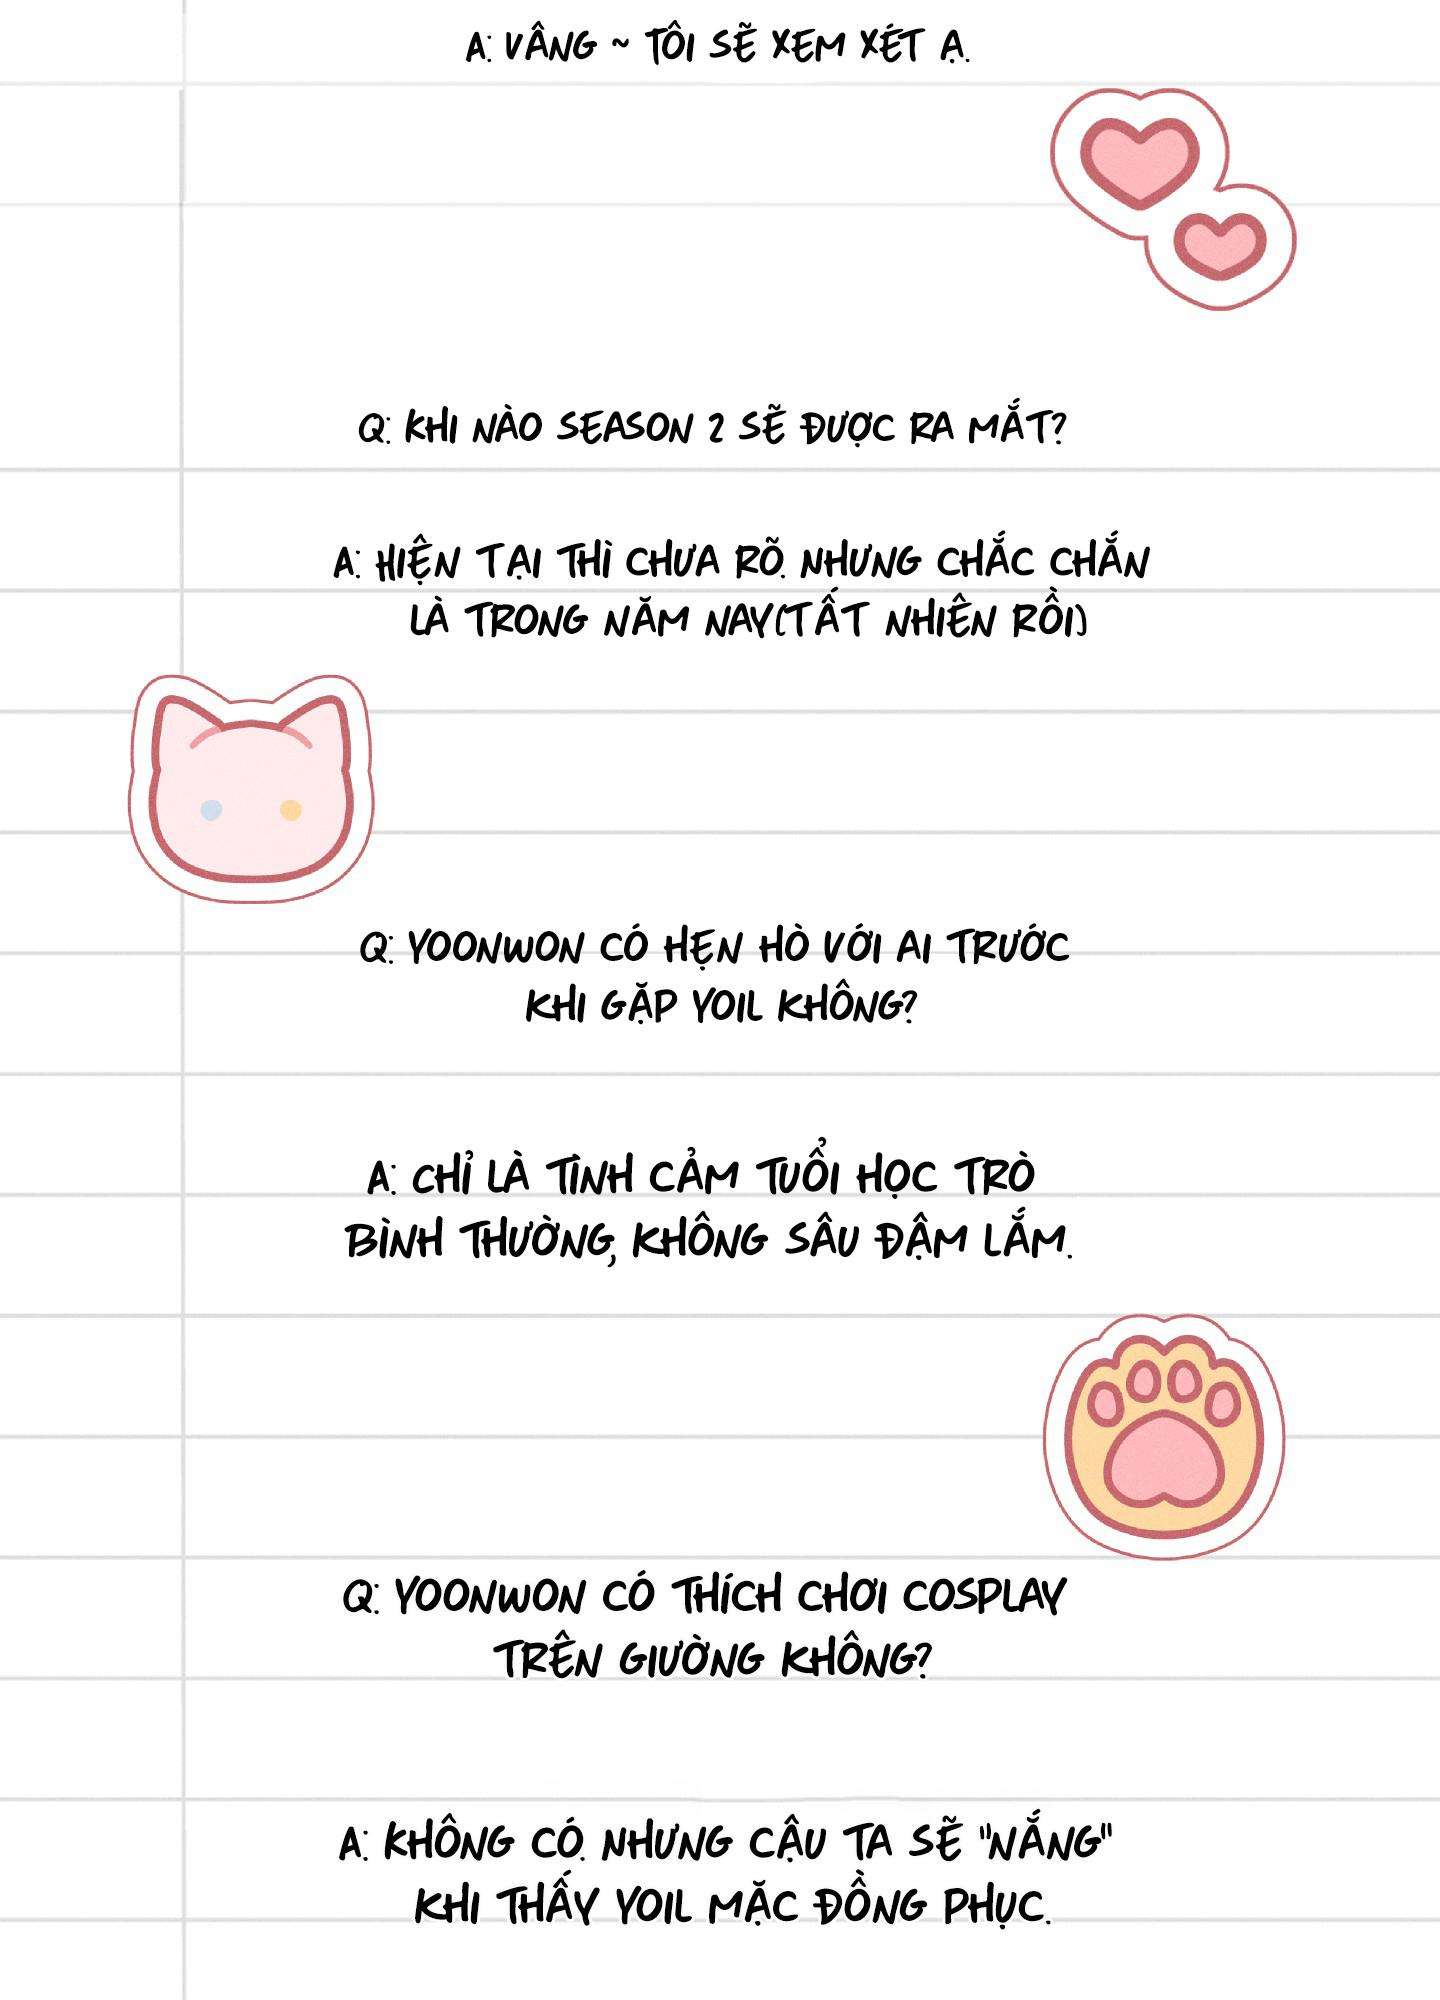 A: VÂNG ~ TÔI SẼ XEM XÉT Ạ.
Q: KHI NÀO SEASON 2 SẼ ĐƯỢC RA MẮT?
A: HIỆN TẠI THÌ CHƯA RÕ. NHƯNG CHẮC CHẮN
LÀ TRONG NĂM NAY(TẤT NHIÊN RỒI)
Q: YOONWON CÓ HẸN HÒ VỚI AI TRƯỚC
KHI GẶP YOIL KHÔNG?
A: CHỈ LÀ TÌNH CẢM TUỔI HỌC TRÒ
BÌNH THƯỜNG, KHÔNG SÂU ĐẬM LẮM.
Q: YOONWON CÓ THÍCH CHƠI COSPLAY
TRÊN GIƯỜNG KHÔNG?
A: KHÔNG CÓ. NHƯNG CẬU TA SẼ "NẮNG"
KHI THẤY YOIL MẶC ĐỒNG PHỤC.